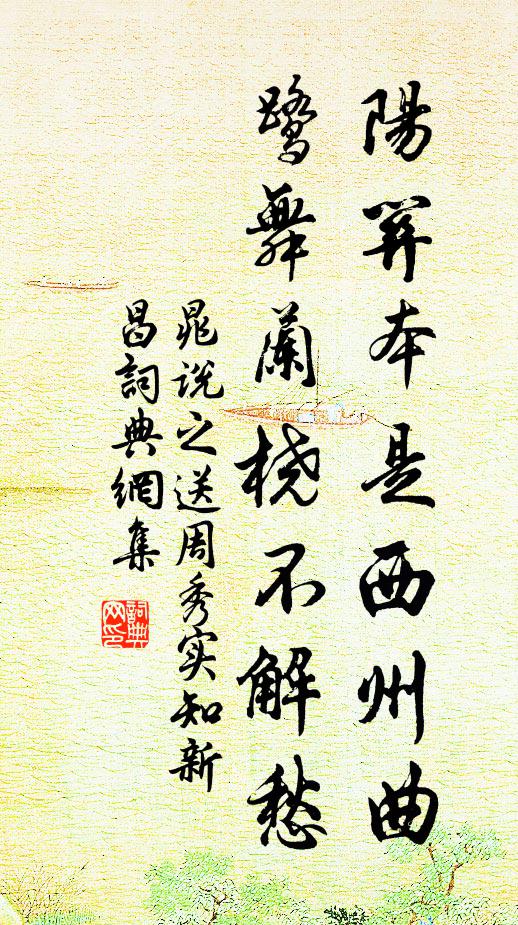 陽関本是西州曲
鹭舞蘭桡不解愁
晁说之送周秀实知新
昌詞典網集
詞典网印